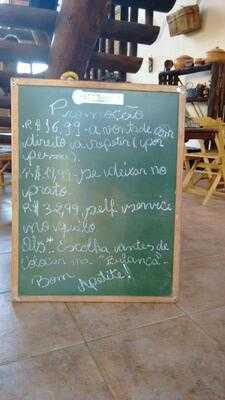 Promoção
R$ 16,99 - a vontade com
direito a repetir (por
pessoa).
R$ 17,99 - se deixar no
prato
R$ 32,99, self service
no quilo
Obs* Escolha antes de
colocar na "Pafança" -
Bom Apetite!